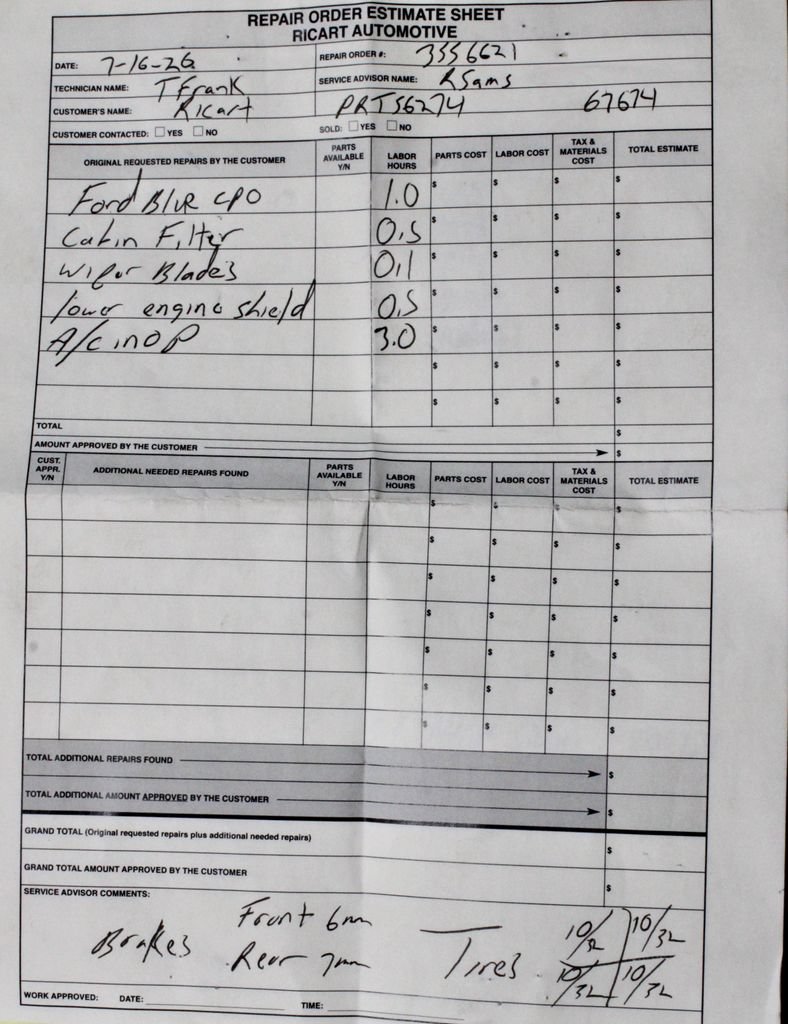 REPAIR ORDER ESTIMATE SHEET
RICART AUTOMOTIVE
DATE: 7-16-26 REPAIR ORDER #: 3556621
TECHNICIAN NAME: T Frank SERVICE ADVISOR NAME: RSams
CUSTOMER'S NAME: Ricart PRTS6274 67674
CUSTOMER CONTACTED: YES NO SOLD: YES NO
ORIGINAL REQUESTED REPAIRS BY THE CUSTOMER PARTS AVAILABLE Y/N LABOR HOURS PARTS COST LABOR COST TAX & MATERIALS COST TOTAL ESTIMATE
Ford Blue CPO 1.0 $ $ $ $
Cabin Filter 0.5 $ $ $ $
Wiper Blades 0.1 $ $ $ $
lower engine shield 0.5 $ $ $ $
A/C inOP 3.0 $ $ $ $
$ $ $ $
$ $ $ $
TOTAL $
AMOUNT APPROVED BY THE CUSTOMER $
CUST. APPR. Y/N ADDITIONAL NEEDED REPAIRS FOUND PARTS AVAILABLE Y/N LABOR HOURS PARTS COST LABOR COST TAX & MATERIALS COST TOTAL ESTIMATE
$ $ $ $
$ $ $ $
$ $ $ $
$ $ $ $
$ $ $ $
$ $ $ $
$ $ $ $
TOTAL ADDITIONAL REPAIRS FOUND $
TOTAL ADDITIONAL AMOUNT APPROVED BY THE CUSTOMER $
GRAND TOTAL (Original requested repairs plus additional needed repairs) $
GRAND TOTAL AMOUNT APPROVED BY THE CUSTOMER $
SERVICE ADVISOR COMMENTS:
Brakes Front 6mm Tires 10/32 10/32
Rear 7mm 10/32 10/32
WORK APPROVED: DATE: TIME: